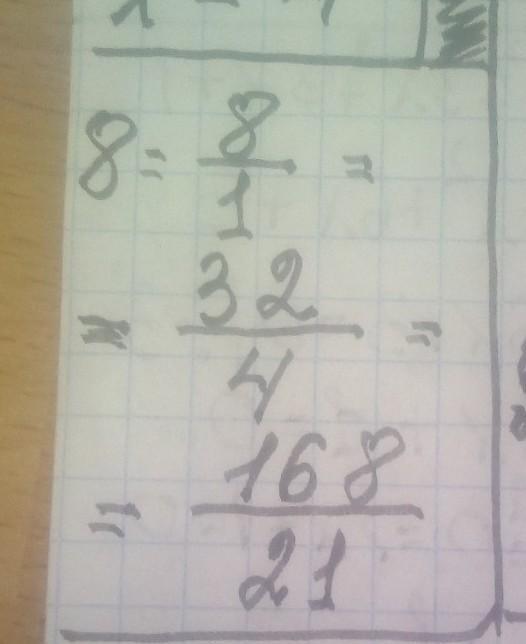 8 = 8/1 =
= 32/4 =
= 168/21